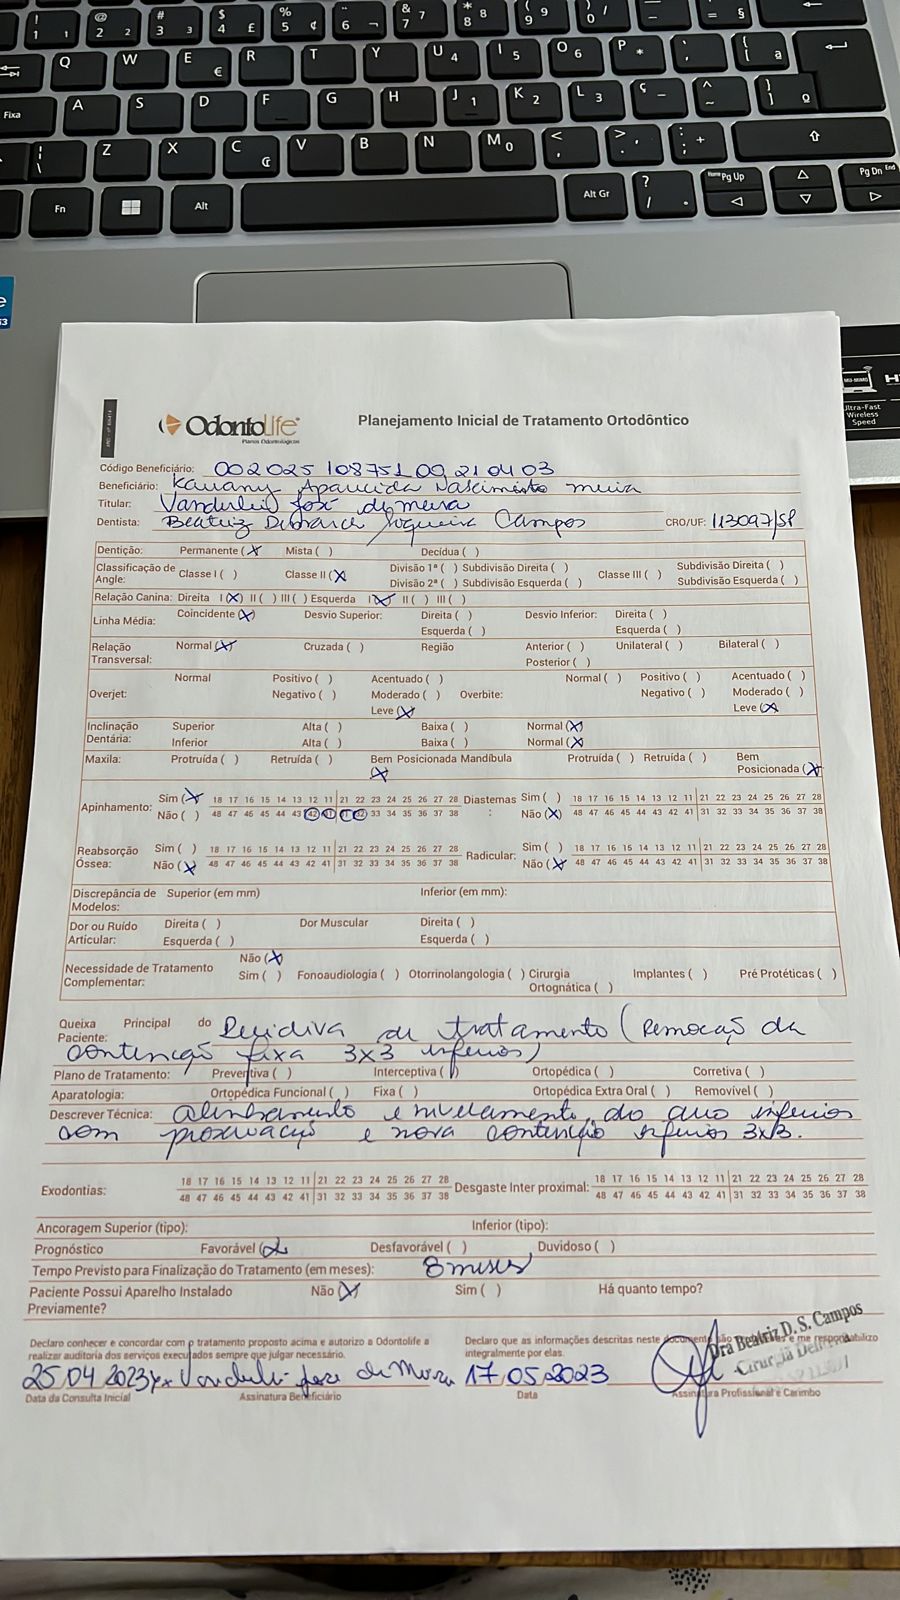 OdontoLife
Planos Odontológicos
Planejamento Inicial de Tratamento Ortodôntico
Código Beneficiário: 002025 108751 00 21 04 03
Beneficiário: Kauany Aparecida Nascimento Meira
Titular: Vanderlei José de Meira
Dentista: Beatriz Nogueira Campos CRO/UF: 113097/SP
Dentição: Permanente (X) Mista ( ) Decídua ( )
Classificação de Angle: Classe I ( ) Classe II (X) Divisão 1ª ( ) Subdivisão Direita ( ) Classe III ( ) Subdivisão Direita ( )
Divisão 2ª ( ) Subdivisão Esquerda ( ) Subdivisão Esquerda ( )
Relação Canina: Direita I (X) II ( ) III ( ) Esquerda I (X) II ( ) III ( )
Linha Média: Coincidente (X) Desvio Superior: Direita ( ) Desvio Inferior: Direita ( )
Esquerda ( ) Esquerda ( )
Relação Transversal: Normal (X) Cruzada ( ) Região Anterior ( ) Unilateral ( ) Bilateral ( )
Posterior ( )
Normal Positivo ( ) Acentuado ( ) Normal ( ) Positivo ( ) Acentuado ( )
Overjet: Negativo ( ) Moderado ( ) Overbite: Negativo ( ) Moderado ( )
Leve (X) Leve (X)
Inclinação Dentária: Superior Alta ( ) Baixa ( ) Normal (X)
Inferior Alta ( ) Baixa ( ) Normal (X)
Maxila: Protruída ( ) Retruída ( ) Bem Posicionada (X) Mandíbula Protruída ( ) Retruída ( ) Bem Posicionada (X)
Apinhamento: Sim (X) 18 17 16 15 14 13 12 11 21 22 23 24 25 26 27 28 Diastemas: Sim ( ) 18 17 16 15 14 13 12 11 21 22 23 24 25 26 27 28
Não ( ) 48 47 46 45 44 43 42 41 31 32 33 34 35 36 37 38 Não (X) 48 47 46 45 44 43 42 41 31 32 33 34 35 36 37 38
Reabsorção Óssea: Sim ( ) 18 17 16 15 14 13 12 11 21 22 23 24 25 26 27 28 Radicular: Sim ( ) 18 17 16 15 14 13 12 11 21 22 23 24 25 26 27 28
Não (X) 48 47 46 45 44 43 42 41 31 32 33 34 35 36 37 38 Não (X) 48 47 46 45 44 43 42 41 31 32 33 34 35 36 37 38
Discrepância de Modelos: Superior (em mm) Inferior (em mm):
Dor ou Ruído Articular: Direita ( ) Dor Muscular Direita ( )
Esquerda ( ) Esquerda ( )
Não (X)
Necessidade de Tratamento Complementar: Sim ( ) Fonoaudiologia ( ) Otorrinolangologia ( ) Cirurgia Ortognática ( ) Implantes ( ) Pré Protéticas ( )
Queixa Principal do Paciente: Recidiva de tratamento (Remoção da
contenção fixa 3x3 inferior)
Plano de Tratamento: Preventiva ( ) Interceptiva ( ) Ortopédica ( ) Corretiva ( )
Aparatologia: Ortopédica Funcional ( ) Fixa ( ) Ortopédica Extra Oral ( ) Removível ( )
Descrever Técnica: alinhamento e nivelamento do arco inferior
com proservação e nova contenção inferior 3x3.
Exodontias: 18 17 16 15 14 13 12 11 21 22 23 24 25 26 27 28 Desgaste Inter proximal: 18 17 16 15 14 13 12 11 21 22 23 24 25 26 27 28
48 47 46 45 44 43 42 41 31 32 33 34 35 36 37 38 48 47 46 45 44 43 42 41 31 32 33 34 35 36 37 38
Ancoragem Superior (tipo): Inferior (tipo):
Prognóstico Favorável (X) Desfavorável ( ) Duvidoso ( )
Tempo Previsto para Finalização do Tratamento (em meses): 8 meses
Paciente Possui Aparelho Instalado Previamente? Não (X) Sim ( ) Há quanto tempo?
Declaro conhecer e concordar com o tratamento proposto acima e autorizo a Odontolife a
realizar auditoria dos serviços executados sempre que julgar necessário.
Declaro que as informações descritas neste documento são e me responsabilizo
integralmente por elas.
25.04.2023 Vanderlei jose de Meira 17.05.2023
Dra Beatriz D. S. Campos
Cirurgiã Dentista
Data da Consulta Inicial Assinatura Beneficiário Data Assinatura Profissional e Carimbo